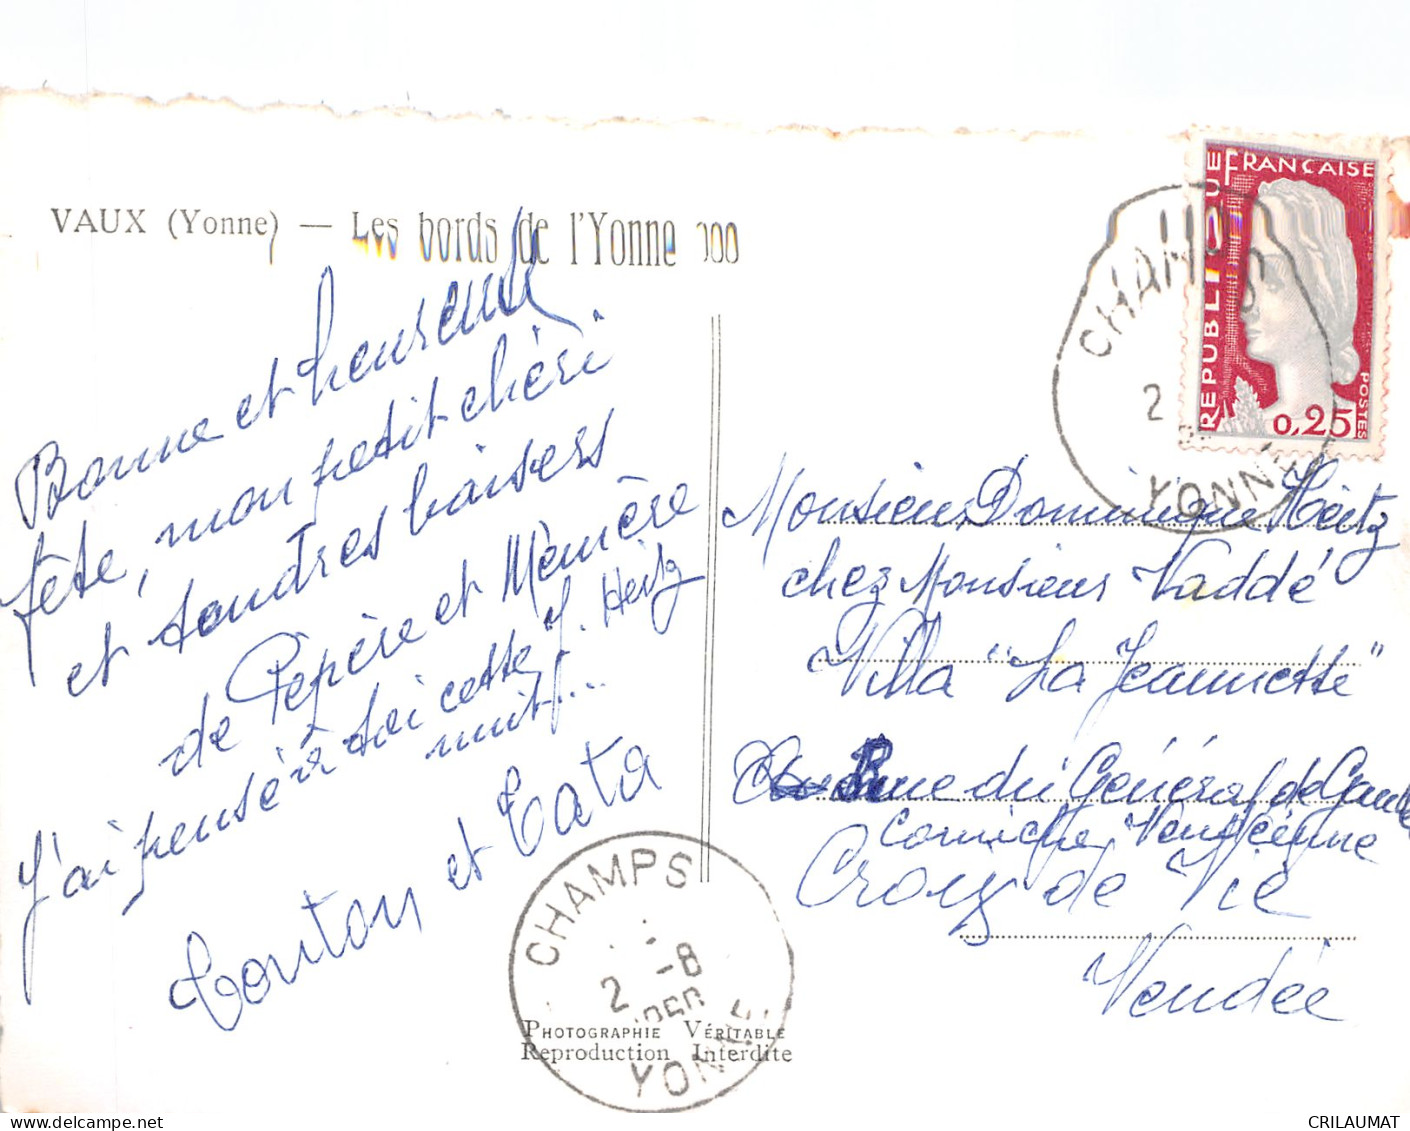 VAUX (Yonne) — Les bords de l'Yonne
Bonne et heureuse
fête, mon petit chéri
et tendres baisers
de Pépère et Mémère
J. Heitz
J'ai pensé à toi cette
nuit...
Tonton et Tata
RÉPUBLIQUE FRANÇAISE
POSTES
0,25
CHAMPS
2
YONNE
Monsieur Dominique Heitz
chez Monsieur Vaddé
Villa "La Jeannette"
Rue du Général de Gaulle
Corniche Vendéenne
Croix de Vie
Vendée
CHAMPS
2 -8
YONNE
PHOTOGRAPHIE VÉRITABLE
Reproduction Interdite
delcampe.net
CRILAUMAT